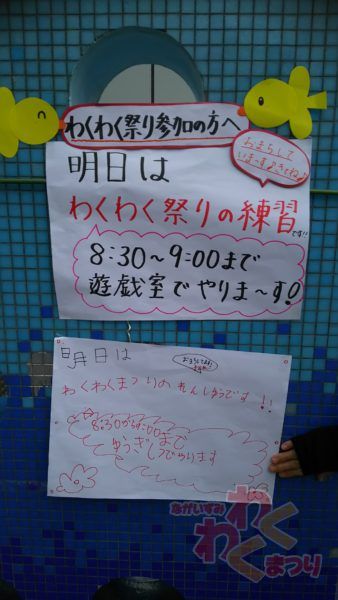 わくわく祭り参加の方へ
明日は
おまちして
いまーす♪きてね♪
わくわく祭りの練習
です!!
8:30～9:00まで
遊戯室でやりま～す!
明日は
わくわくまつりのれんしゅうです!!
8:30から9:00まで
ゆうぎしつでやります
ながいずみ
わく
わく
まつり